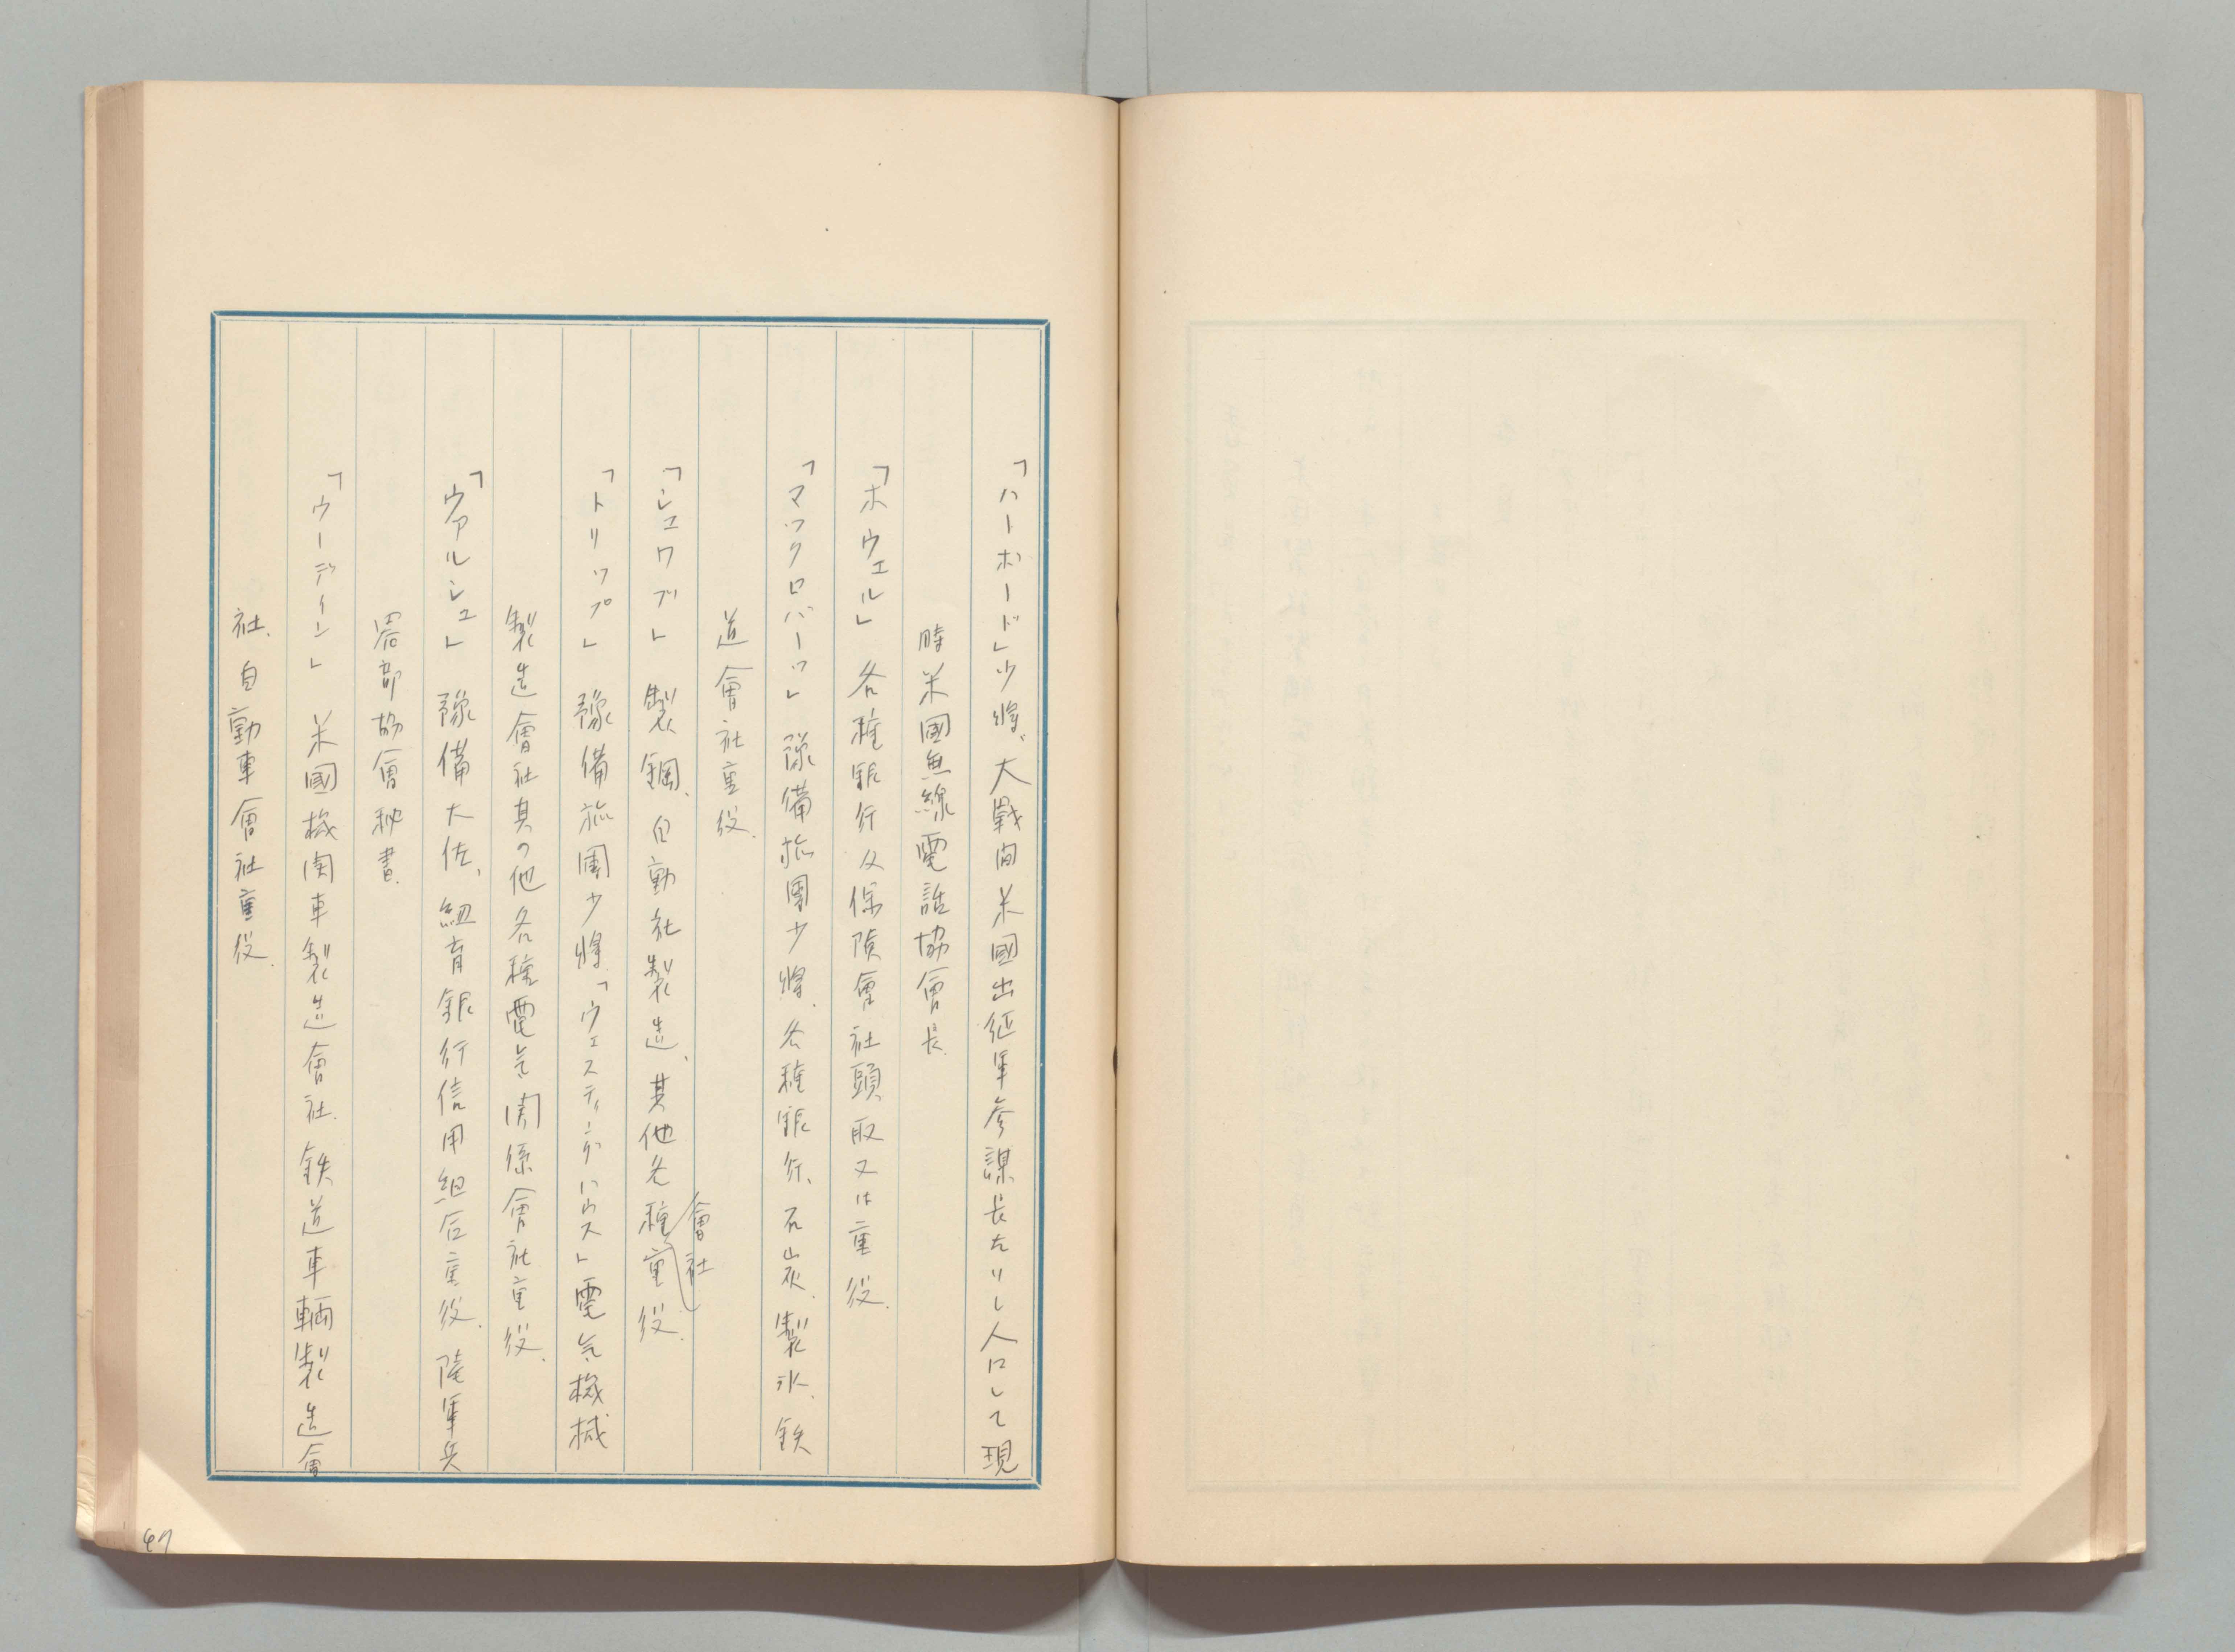 「ハーボード」少將、大戰間米國出征軍参謀長たりし人にして現
時米國無線電話協會長
「ホウエル」各種銀行及保険會社頭取又は重役.
「マックロバーツ」豫備旅團少將、各種銀行、石炭、製氷、鉄
道會社重役.
「シュワブ」製鋼、自動社製造、其他各種會社重役.
「トリップ」豫備旅團少將、「ウェスティングハウス」電気機械
製造會社其の他各種電気関係會社重役.
「ウアルシュ」豫備大佐、紐育銀行信用組合重役、陸軍兵
器部協會秘書.
「ウーディン」米國機関車製造會社、鉄道車輌製造會
社、自動車會社重役.
47